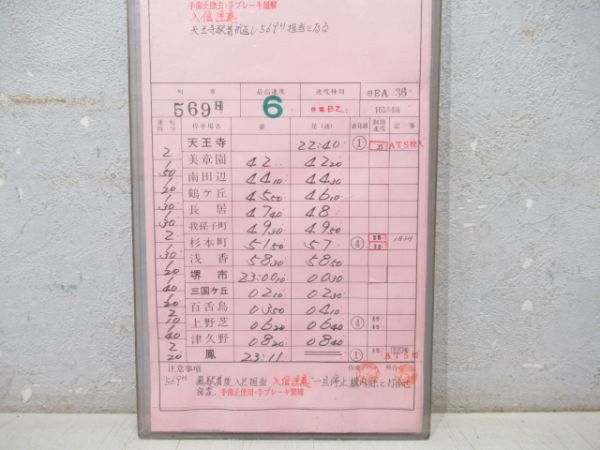 手歯止撤去・手ブレーキ緩解
入信注意
天王寺駅着折返し569H担当となる
列車 最高速度 速度種別
569H 6 停電B2 EA 36
運転時分 停車場名 着 発(通) 着発線 制限速度 記事
天王寺 22:40 ① 35 ATS投入
2 美章園 42 42 20
50 南田辺 44 10 44 30
20 鶴ケ丘 45 50 46 10
30 長居 47 40 48
30 我孫子町 49 30 49 50
2 杉本町 51 50 57 ④
30 浅香 58 30 58 50
20 堺市 23:00 10 00 30
40 三国ケ丘 02 10 02 30
百舌鳥 03 50 04 10
10 上野芝 06 20 06 40 ④
40 津久野 08 20 08 40
2 20 鳳 23:11 ① ATS切
注意事項 作成 照合
569H 鳳駅着後入区担当 入信注意 一旦停止
手歯止使用・手ブレーキ緊締